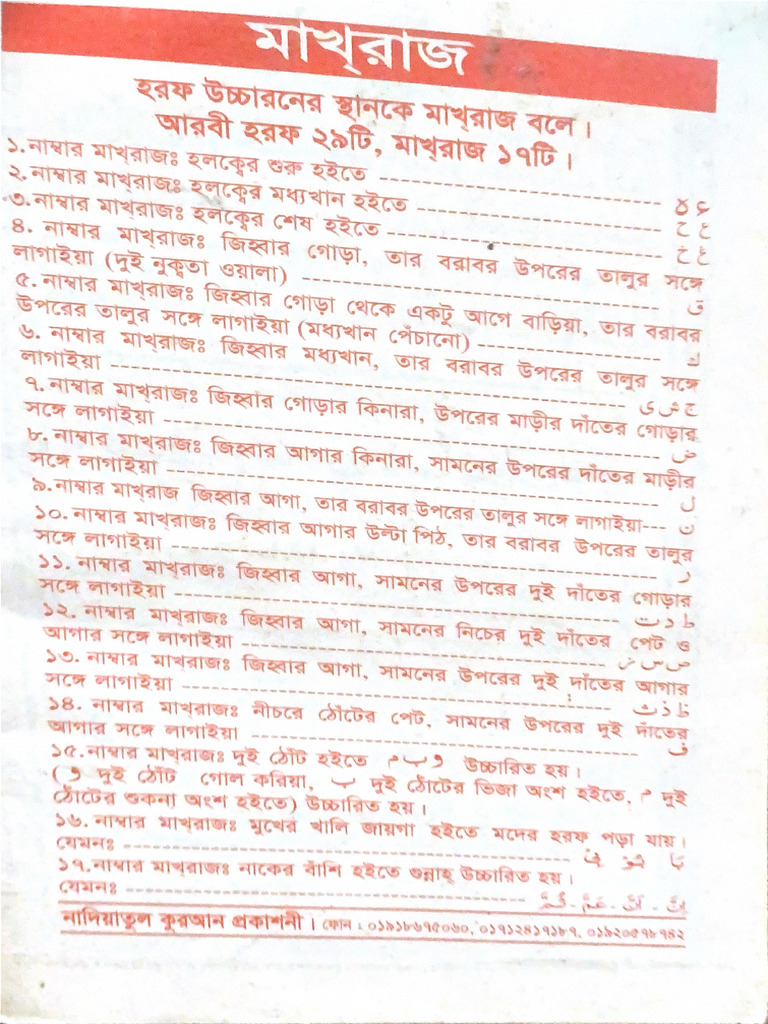 মাখ্‌রাজ
হরফ উচ্চারনের স্থানকে মাখ্‌রাজ বলে।
আরবী হরফ ২৯টি, মাখ্‌রাজ ১৭টি।
১.নাম্বার মাখ্‌রাজঃ হলক্বের শুরু হইতে ء ه
২.নাম্বার মাখ্‌রাজঃ হলক্বের মধ্যখান হইতে ع ح
৩.নাম্বার মাখ্‌রাজঃ হলক্বের শেষ হইতে غ خ
৪. নাম্বার মাখ্‌রাজঃ জিহ্বার গোড়া, তার বরাবর উপরের তালুর সঙ্গে
লাগাইয়া (দুই নুক্বতা ওয়ালা) ق
৫. নাম্বার মাখ্‌রাজঃ জিহ্বার গোড়া থেকে একটু আগে বাড়িয়া, তার বরাবর
উপরের তালুর সঙ্গে লাগাইয়া (মধ্যখান পেঁচানো) ك
৬. নাম্বার মাখ্‌রাজঃ জিহ্বার মধ্যখান, তার বরাবর উপরের তালুর সঙ্গে
লাগাইয়া ج ش ى
৭. নাম্বার মাখ্‌রাজঃ জিহ্বার গোড়ার কিনারা, উপরের মাড়ীর দাঁতের গোড়ার
সঙ্গে লাগাইয়া ض
৮. নাম্বার মাখ্‌রাজঃ জিহ্বার আগার কিনারা, সামনের উপরের দাঁতের মাড়ীর
সঙ্গে লাগাইয়া ل
৯.নাম্বার মাখ্‌রাজ জিহ্বার আগা, তার বরাবর উপরের তালুর সঙ্গে লাগাইয়া--- ن
১০. নাম্বার মাখ্‌রাজঃ জিহ্বার আগার উল্টা পিঠ, তার বরাবর উপরের তালুর
সঙ্গে লাগাইয়া ر
১১. নাম্বার মাখ্‌রাজঃ জিহ্বার আগা, সামনের উপরের দুই দাঁতের গোড়ার
সঙ্গে লাগাইয়া ط د ت
১২. নাম্বার মাখ্‌রাজঃ জিহ্বার আগা, সামনের নিচের দুই দাঁতের পেট ও
আগার সঙ্গে লাগাইয়া ص س ز
১৩. নাম্বার মাখ্‌রাজঃ জিহ্বার আগা, সামনের উপরের দুই দাঁতের আগার
সঙ্গে লাগাইয়া ظ ذ ث
১৪. নাম্বার মাখ্‌রাজঃ নীচরে ঠোঁটের পেট, সামনের উপরের দুই দাঁতের
আগার সঙ্গে লাগাইয়া ف
১৫.নাম্বার মাখ্‌রাজঃ দুই ঠোঁট হইতে و ب م উচ্চারিত হয়।
(و দুই ঠোঁট গোল করিয়া, ب দুই ঠোঁটের ভিজা অংশ হইতে, م দুই
ঠোঁটের শুকনা অংশ হইতে) উচ্চারিত হয়।
১৬. নাম্বার মাখ্‌রাজঃ মুখের খালি জায়গা হইতে মদের হরফ পড়া যায়।
যেমনঃ
১৭.নাম্বার মাখ্‌রাজঃ নাকের বাঁশি হইতে গুন্নাহ্ উচ্চারিত হয়।
যেমনঃ
নাদিয়াতুল কুরআন প্রকাশনী। ফোন : ০১৯১৮৬৭৫০৬০, ০১৭১২৪১৭১৮৭, ০১৯২০৫৭৮৭৪২